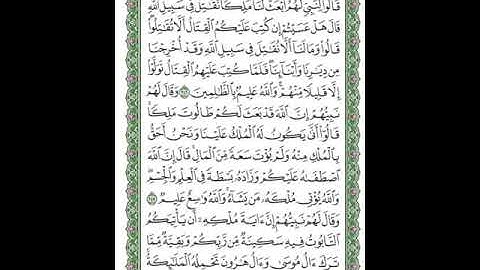 قَالُوا۟ لِنَبِىٍّ لَّهُمُ ٱبْعَثْ لَنَا مَلِكًا نُّقَـٰتِلْ فِى سَبِيلِ ٱللَّهِ
قَالَ هَلْ عَسَيْتُمْ إِن كُتِبَ عَلَيْكُمُ ٱلْقِتَالُ أَلَّا تُقَـٰتِلُوا۟
قَالُوا۟ وَمَا لَنَآ أَلَّا نُقَـٰتِلَ فِى سَبِيلِ ٱللَّهِ وَقَدْ أُخْرِجْنَا
مِن دِيَـٰرِنَا وَأَبْنَآئِنَا فَلَمَّا كُتِبَ عَلَيْهِمُ ٱلْقِتَالُ تَوَلَّوْا۟
إِلَّا قَلِيلًا مِّنْهُمْ وَٱللَّهُ عَلِيمٌۢ بِٱلظَّـٰلِمِينَ ٢٤٦ وَقَالَ لَهُمْ
نَبِيُّهُمْ إِنَّ ٱللَّهَ قَدْ بَعَثَ لَكُمْ طَالُوتَ مَلِكًا
قَالُوٓا۟ أَنَّىٰ يَكُونُ لَهُ ٱلْمُلْكُ عَلَيْنَا وَنَحْنُ أَحَقُّ
بِٱلْمُلْكِ مِنْهُ وَلَمْ يُؤْتَ سَعَةً مِّنَ ٱلْمَالِ قَالَ إِنَّ ٱللَّهَ
ٱصْطَفَىٰهُ عَلَيْكُمْ وَزَادَهُۥ بَسْطَةً فِى ٱلْعِلْمِ وَٱلْجِسْمِ
وَٱللَّهُ يُؤْتِى مُلْكَهُۥ مَن يَشَآءُ وَٱللَّهُ وَٰسِعٌ عَلِيمٌ ٢٤٧
وَقَالَ لَهُمْ نَبِيُّهُمْ إِنَّ ءَايَةَ مُلْكِهِۦٓ أَن يَأْتِيَكُمُ
ٱلتَّابُوتُ فِيهِ سَكِينَةٌ مِّن رَّبِّكُمْ وَبَقِيَّةٌ مِّمَّا
تَرَكَ ءَالُ مُوسَىٰ وَءَالُ هَـٰرُونَ تَحْمِلُهُ ٱلْمَلَـٰٓئِكَةُ